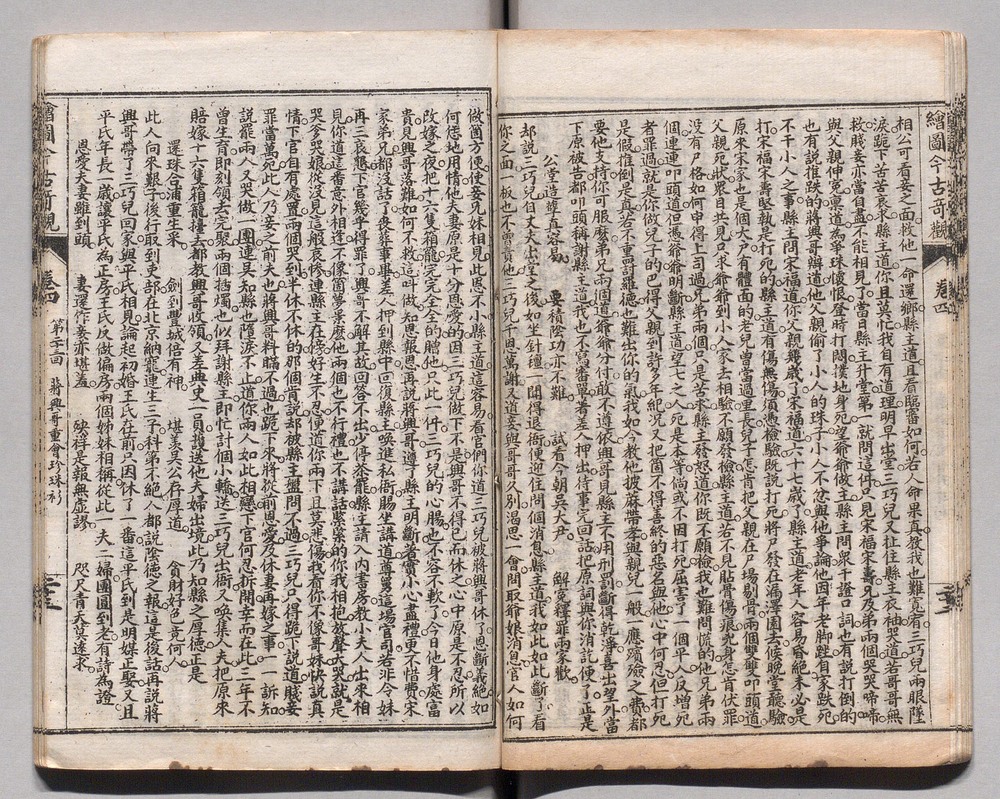 繪圖今古奇觀
卷四
相公可看妾之面救他一命還鄉縣主道且看臨審如何若人命果真教我也難寬宥三巧兒兩眼墮
淚跪下苦苦哀求縣主道你且莫忙我自有道理明早出堂三巧兒又扯住縣主衣袖哭道若哥哥無
救賤妾亦當自盡不能相見了當日縣主升堂第一就問這件只見宋福宋壽兄弟兩個哭哭啼啼
與父親伸冤稟道為爭珠懷恨登時打悶僕地身死望爺爺做主縣主問眾干證口詞也有說打倒的
也有說推跌的蔣興哥辯道他父親偷了小人的珠子小人不忿與他爭論他因年老腳𨂂自家跌死
不干小人之事縣主問宋福道你父親幾歲了宋福道六十七歲了縣主道老年人容易昏絕未必是
打宋福宋壽堅執是打死的縣主道有傷無傷須憑檢驗既說打死將尸發在漏澤園去候晚堂聽驗
原來宋家也是個大戶有體面的老兒曾當過里長兒子怎肯把父親在尸場剔骨兩個雙雙叩頭道
父親死狀眾目共見只求爺爺到小人家去相驗不願發檢縣主道若不見貼骨傷痕兇身怎肯伏罪
沒有尸格如何申得上司過兄弟兩個只是苦求縣主發怒道你既不願檢我也難問慌的他兄弟兩
個連連叩頭道但憑爺爺明斷縣主道望七之人死是本等倘或不因打死屈害了一個平人反增死
者罪過就是你做兒子的巴得父親到許多年紀又把個不得善終的惡名與他心中何忍但打死
是假推倒是真若不重罰羅德也難出你的氣我如今教他披麻帶孝與親兒一般一應殯殮之費都
要他支持你可服麼弟兄兩個道爺爺分付敢不遵依興哥見縣主不用刑罰斷得乾淨喜出望外當
下原被告都叩頭稱謝縣主道我也不寫審單著差人押出待事完回話把原詞與你消訖便了正是
公堂造孽真容易
要積陰功亦不難
試看今朝吳大尹
解冤釋罪兩家歡
却說三巧兒自丈夫出堂之後如坐針氈一聞得退衙便迎住問個消息縣主道我如此如此斷了看
你之面一板也不曾責他三巧兒千恩萬謝又道妾與哥哥久別渴思一會問取爹娘消息官人如何
做箇方便使妾兄妹相見此恩不小縣主道這容易看官們你道三巧兒被蔣興哥休了恩斷義絕如
何恁地用情他夫妻原是十分恩愛的因三巧兒做下不是興哥不得已而休之心中原是不忍所以
改嫁之夜把十六隻箱籠完完全全的贈他只此一件三巧兒的心腸也不容不軟了今日他身處富
貴見興哥落難如何不救這叫做知恩報恩再說蔣興哥遵了縣主明斷着實小心盡禮更不惜費宋
家弟兄都沒話了喪葬事畢差人押到縣中回復縣主喚進私衙賜坐講道尊舅這場官司若非令妹
再三哀懇下官幾乎得罪了興哥不解其故回答不出少停茶罷縣主請入內書房教小夫人出來相
見你道這番意外相逢不像個夢景麼他兩個也不行禮也不講話緊緊的你我相抱放聲大哭就是
哭爹哭娘從沒見這般哀慘連縣主在傍好生不忍便道你兩下且莫悲傷我看你不像哥妹快說真
情下官自有處置兩個哭到半休不休的那個肯說却被縣主盤問不過三巧兒只得跪下說道賤妾
罪當萬死此人乃妾之前夫也蔣興哥料瞞不過也跪下來將從前恩愛及休妻再嫁之事一一訴知
說罷兩人又哭做一團連吳知縣也墮淚不止道你兩人如此相戀下官何忍拆開幸而在此三年不
曾生育即刻領去完聚兩個插燭也似拜謝縣主即忙討個小轎送三巧兒出衙又喚集人夫把原來
賠嫁十六隻箱籠擡去都教興哥收領又差典史一員護送他夫婦出境此乃知縣之厚德正是
還珠合浦重生采
劍到豐城倍有神
堪羨吳公存厚道
貪財好色竟何人
此人向來艱子後行取到吏部在北京納寵連生三子科第不絕人都說陰德之報這是後話再說蔣
興哥帶了三巧兒回家與平氏相見論起初婚王氏在前只因休了一番這平氏到是明媒正娶又且
平氏年長一歲讓平氏為正房王氏反做偏房兩個姊妹相稱從此一夫二婦團圓到老有詩為證
恩愛夫妻雖到頭
妻還作妾亦堪羞
殃祥是報無虛謬
咫尺青天莫遠求
繪圖今古奇觀
卷四
第二十三回
蔣興哥重會珍珠衫